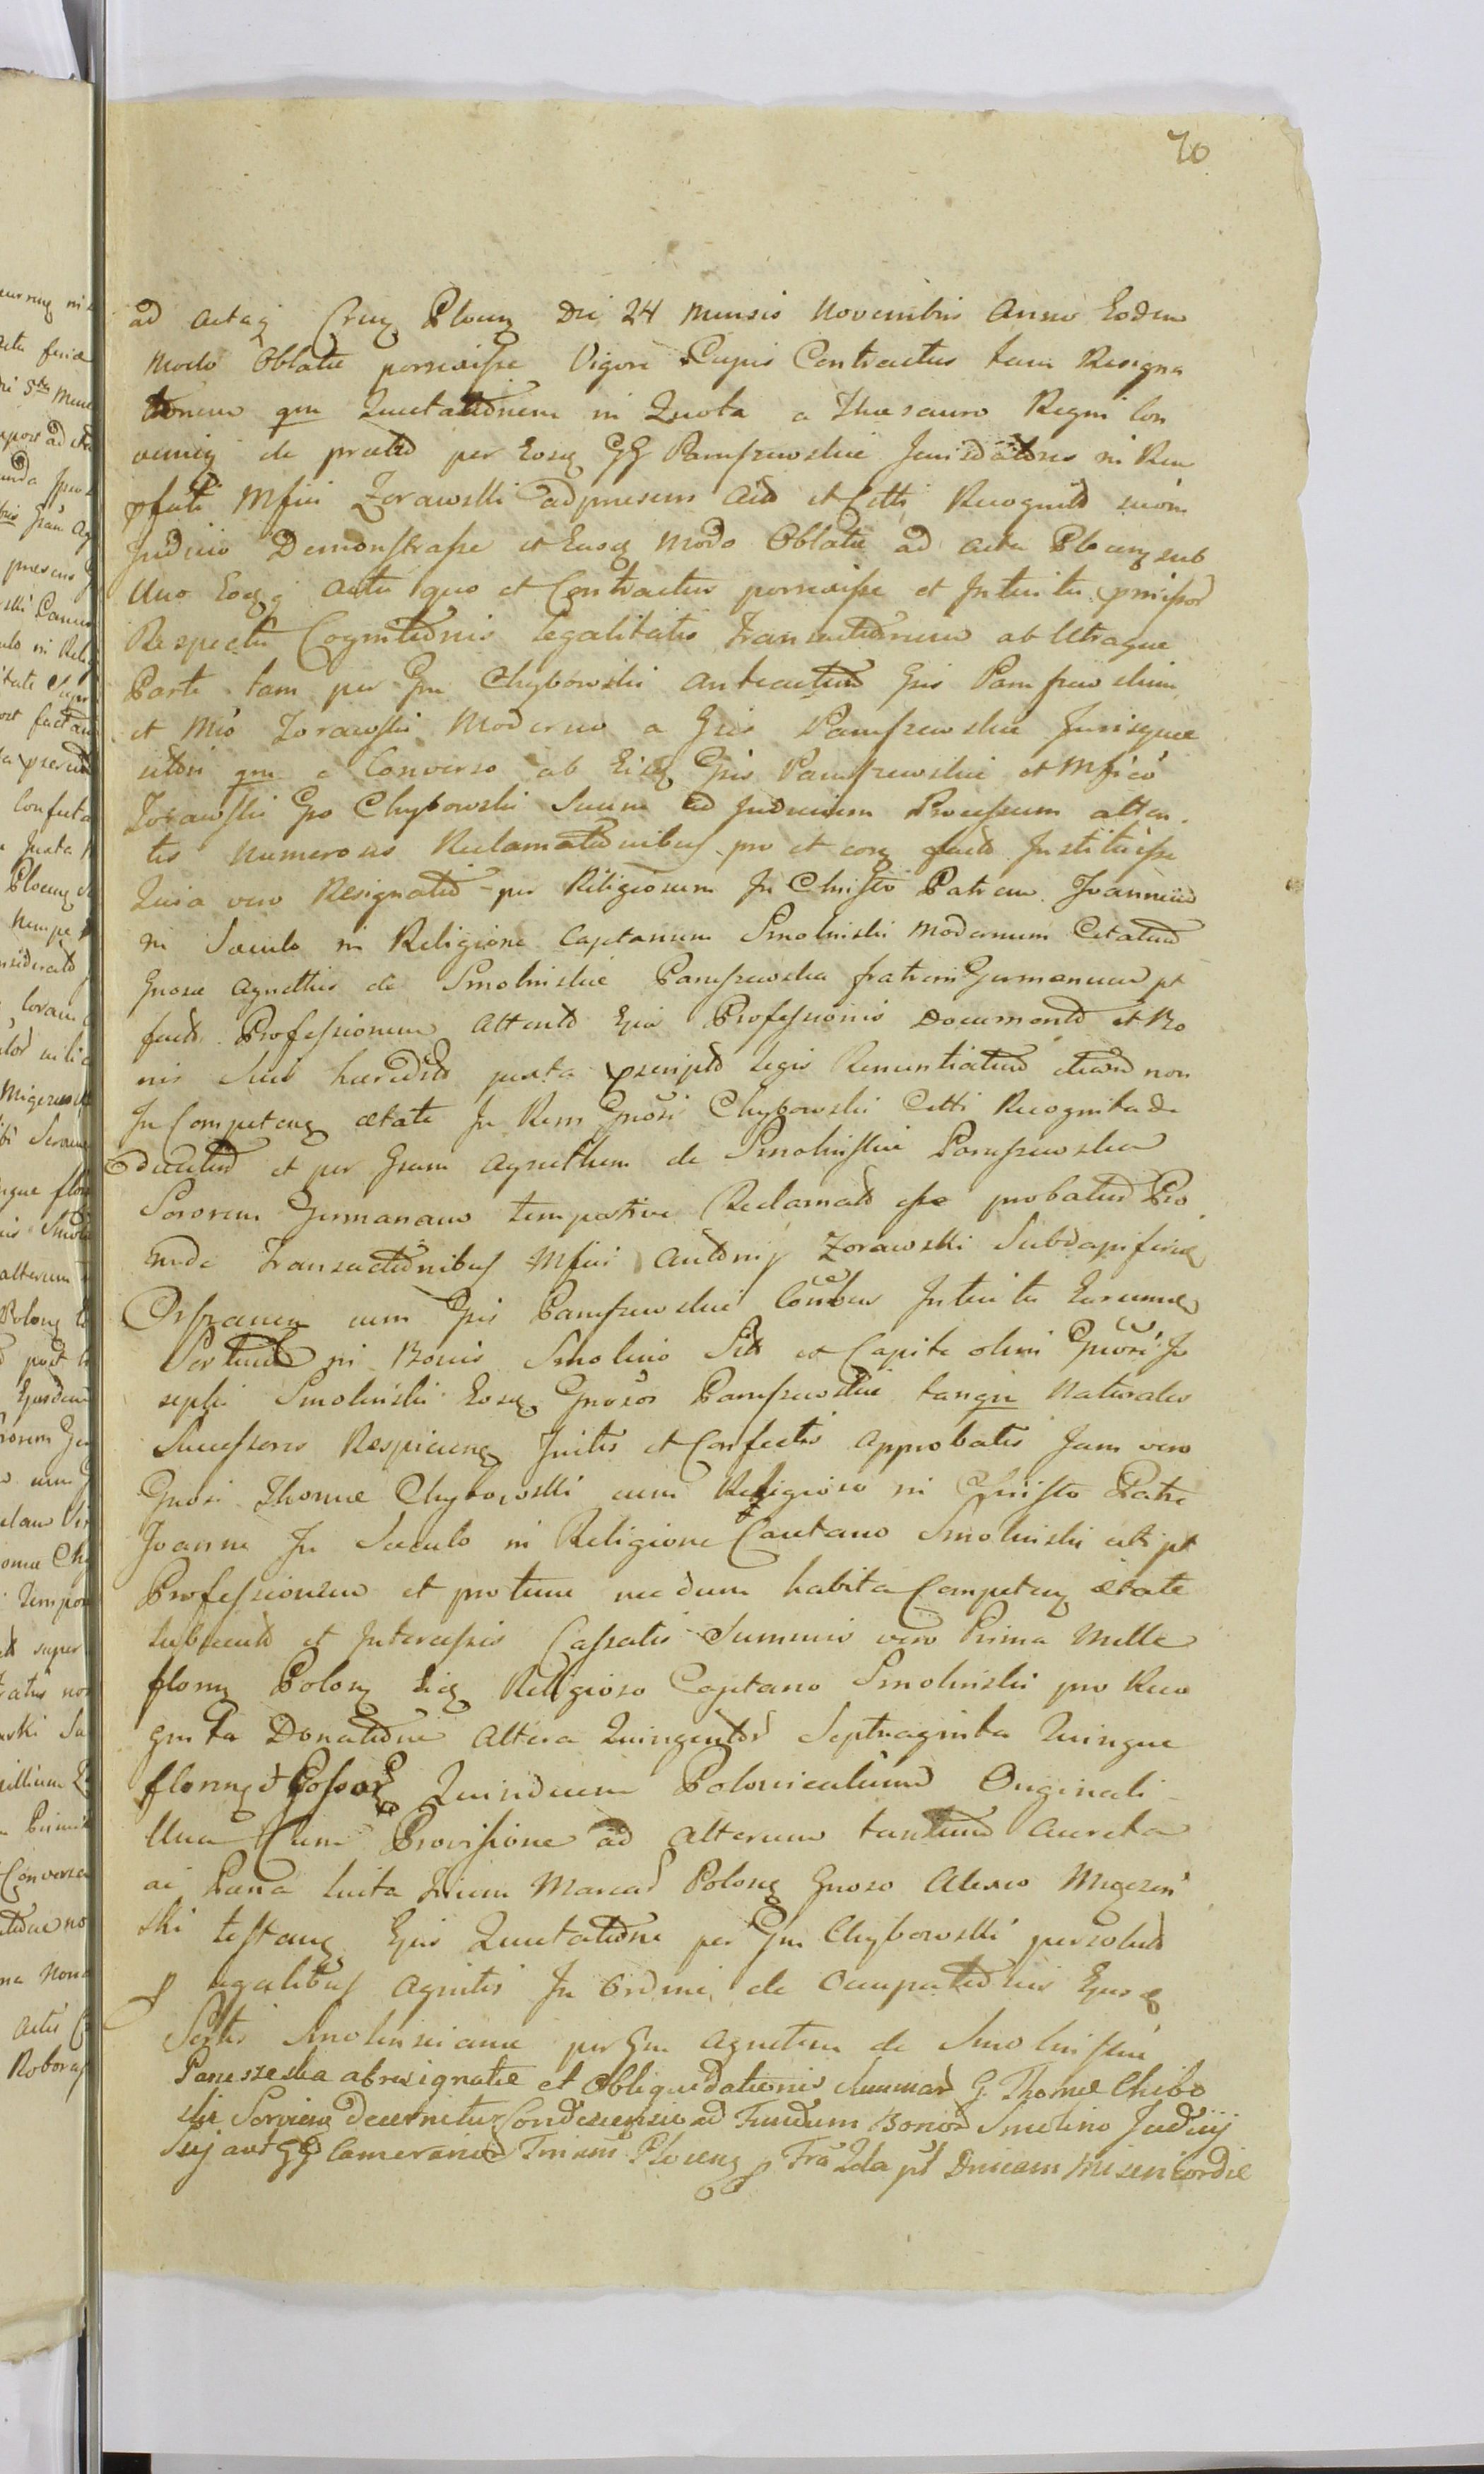 70
ad acta Cren Plocen Die 24 Mensis Novembris Anno Eodem
Modo Oblatae porrexisse Vigore Cujus Contractus tam Resigna
tionem qm Quietationem in Quota a Thesauro Regni Con
venien de praetio per Eosq GG Pamszewskie Jurisdatores in Rem
pfati Mfici Zorawski ad praesens Acto et Cctti Recognito suom
Judicio Demonstrasse et Easq Modo Oblatae ad Acta Plocen sub
Uno Eoq actu quo et Contractus porrexisse et Intuitu pmissor
Respectu Cognitionis Legalitatis Transactionum ab Utraque
Parte tam per Gm Chybowski anteactum Gis Pamszewskim
et Mfco Zorawski Moderno a Gis Pamszewskie Jurisquae
sitori qm e Converso ab Eisq Gis Pamszewskie et Mfico
Zorawski Go Chybowski Suum ad Judicium Processum atten
tis Numerosis Reclamationibus pro et con facto Instituisse
Quia vero Resignatio per Religiosum In Christo Patrem Joannem
in Saeculo in Religione Cajetanum Smolinski Modernum Citatum
Gnosae Agnethis de Smolinskie Pamszewska fratrem Germanum pt
facto Professionem Attento Ejus Professionis Documento et Bo
nis Suis haeredit juxta pscripto Legis Renuntiatum etiam non
In Competen aetate In Rem Gnosi Chybowski Cctti Recognita de
ductum et per Gnam Agnethem de Smolinskie Pamszewska
Sororem Germanam tempestive Reclamato esse probatum Pro
inde Transactionibus Mfici Antonij Zorawski Subdapiferi
cum Gis Pamszewskie Intuitu Earum
Sortium in Bonis Smolino Sit ex Capite olim Gnosi Jo
sephi Smolinski Eosq Gnosos Pamszewskie tanqm Naturales
Successores Respicien Initis et Confectis Approbatis Jam vero
Gnosi Thomae Chybowski cum Religioso in Christo Patre
Joanne In Saeculo in Religione Caietano Smolinski uti pt
Professionem et protunc necdum habita Competen aetate
subsecuto et Intercessis Cassatis Summis vero Prima Mille
floren Polon eiq Religioso Cajetano Smolinski pro Reco
gnita Donatione Altera Quingentor Septuaginta Quinque
floren Quindecim Polonicalium Originali
Una Cum Provisione ad Alterum tantum Aucreta
ac Paena luita Trium Marcar Polon Gnoso Alexio Migczyn
ski testan Ejus Quietatione per Gm Chybowski persoluto
p Legalibus Agnitis In Ordine de Occupationis Ejusq
Sortis Smolinscianae per Gm Agnetem de Smolinskie
Pamszeska abresignatae et Obliquidationis Summar G. Thomae Chibo
ski Servien Decernitur Condescensio ad Fundum Bonor Smolino Judicij
Sui aut GG Camerarior Trrium Plocen Fra 2da pt Dnicam Misericordie